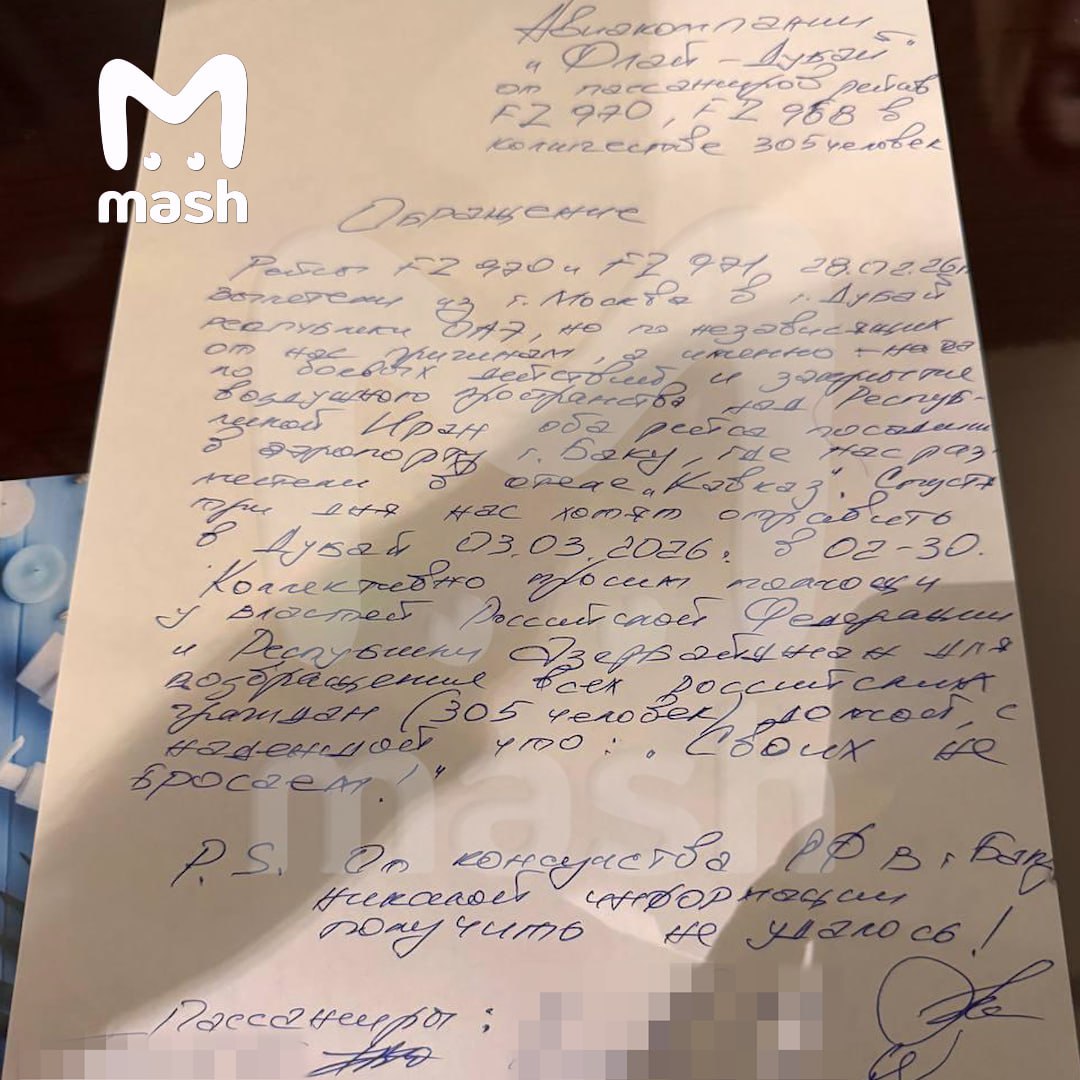 mash
Авиакомпании
"Флай-Дубай"
от пассажиров рейсов
FZ 970, FZ 968 в
количестве 305 человек
Обращение
Рейсы FZ 970 и FZ 971 28.02.26г
вылетели из г. Москва в г. Дубай
республики ОАЭ, но по независящих
от нас причинам, а именно - нача
ло боевых действий и закрытие
воздушного пространства над Респуб-
ликой Иран оба рейса посадили
в аэропорту г. Баку, где нас раз-
местели в отеле "Кавказ". Спустя
три дня нас хотят отправить
в Дубай 03.03.2026г в 02-30.
Коллективно просим помощи
у властей Российской Федерации
и Республики Азербайджан для
возвращения всех российских
граждан (305 человек) домой, с
надеждой что: "Своих не
бросаем!"
P.S. От консульства РФ в г Баку
никакой информации
получить не удалось!
Пассажиры:
mash